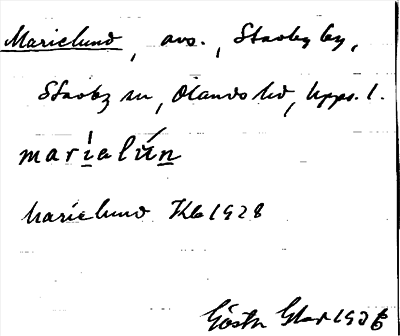 Marielund, avs., Stavby by,
Stavby sn, Olands hd, Upps. l.
marialún
Marielund Kla 1928
Gösta 1936